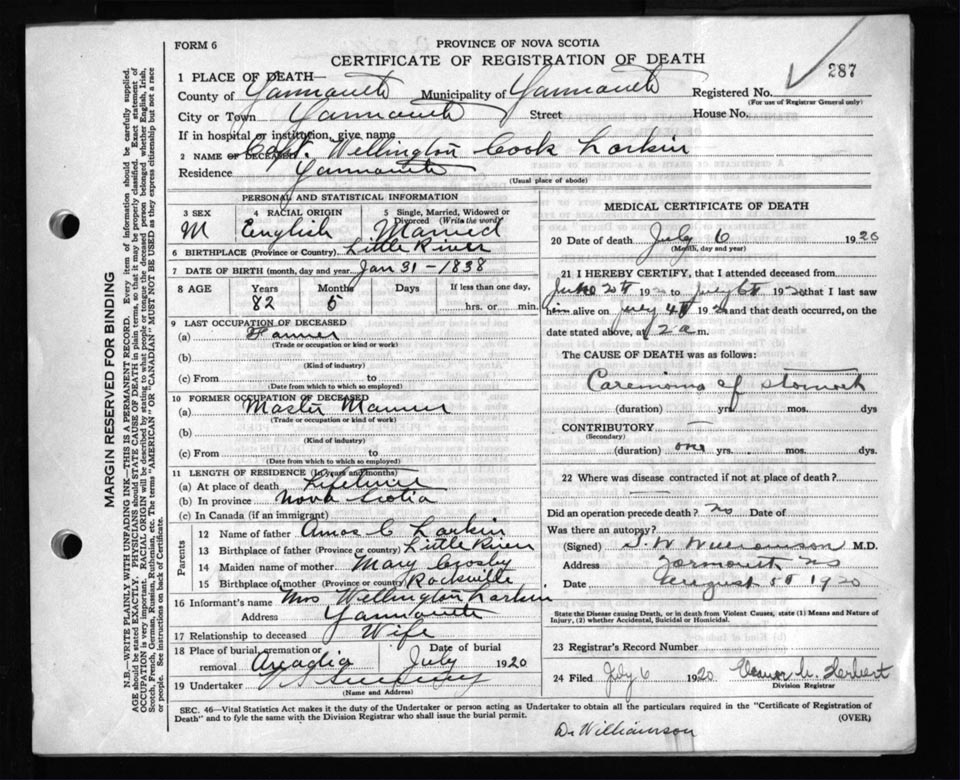 FORM 6
PROVINCE OF NOVA SCOTIA
CERTIFICATE OF REGISTRATION OF DEATH
287
1 PLACE OF DEATH—
County of Yarmouth Municipality of Yarmouth Registered No.
(For use of Registrar General only)
City or Town Yarmouth Street House No.
If in hospital or institution, give name
2 NAME OF DECEASED Capt. Wellington Cook Larkin
Residence Yarmouth
(Usual place of abode)
PERSONAL AND STATISTICAL INFORMATION
3 SEX 4 RACIAL ORIGIN 5 Single, Married, Widowed or Divorced (Write the word)
M English Married
6 BIRTHPLACE (Province or Country) Little River
7 DATE OF BIRTH (month, day and year) Jan 31 - 1838
8 AGE Years Months Days If less than one day,
82 5 hrs. or min.
9 LAST OCCUPATION OF DECEASED
(a) Farmer
(Trade or occupation or kind or work)
(b)
(Kind of industry)
(c) From to
(Date from which to which so employed)
10 FORMER OCCUPATION OF DECEASED
(a) Master Mariner
(Trade or occupation or kind of work)
(b)
(Kind of industry)
(c) From to
(Date from which to which so employed)
11 LENGTH OF RESIDENCE (In years and months)
(a) At place of death Lifetime
(b) In province Nova Scotia
(c) In Canada (if an immigrant)
Parents
12 Name of father Amos C Larkin
13 Birthplace of father (Province or country) Little River
14 Maiden name of mother Mary Crosby
15 Birthplace of mother (Province or country) Rockville
16 Informant's name Mrs Wellington Larkin
Address Yarmouth
17 Relationship to deceased Wife
18 Place of burial, cremation or removal Date of burial
July 1920
19 Undertaker
(Name and Address)
MEDICAL CERTIFICATE OF DEATH
20 Date of death July 6 1920
(Month, day and year)
21 I HEREBY CERTIFY, that I attended deceased from
June 20th 1920 to July 6th 1920 that I last saw
him alive on July 4th 1920 and that death occurred, on the
date stated above, at 2 a m.
The CAUSE OF DEATH was as follows:
Carcinoma of stomach
(duration) yrs. mos. dys
CONTRIBUTORY
(Secondary)
(duration) one yrs. mos. dys.
22 Where was disease contracted if not at place of death?
Did an operation precede death? no Date of
Was there an autopsy?
(Signed) S. W Williamson M.D.
Address Yarmouth NS
Date August 5th 1920
State the Disease causing Death, or in death from Violent Causes, state (1) Means and Nature of
Injury, (2) whether Accidental, Suicidal or Homicidal.
23 Registrar's Record Number
24 Filed July 6 1920 Herbert
Division Registrar
SEC. 46—Vital Statistics Act makes it the duty of the Undertaker or person acting as Undertaker to obtain all the particulars required in the "Certificate of Registration of
Death" and to fyle the same with the Division Registrar who shall issue the burial permit. (OVER)
Dr Williamson
MARGIN RESERVED FOR BINDING
N.B.—WRITE PLAINLY WITH UNFADING INK—THIS IS A PERMANENT RECORD. Every item of information should be carefully supplied.
AGE should be stated EXACTLY. PHYSICIANS should STATE CAUSE OF DEATH in plain terms, so that it may be properly classified. Exact statement of
OCCUPATION is very important. RACIAL ORIGIN will be described by stating to what people or tongue the deceased person belonged whether English, Irish,
Scotch, French, German, Russian, Ruthenian, etc. The terms "AMERICAN" OR "CANADIAN" MUST NOT BE USED as they express citizenship but not a race
or people. See instructions on back of Certificate.